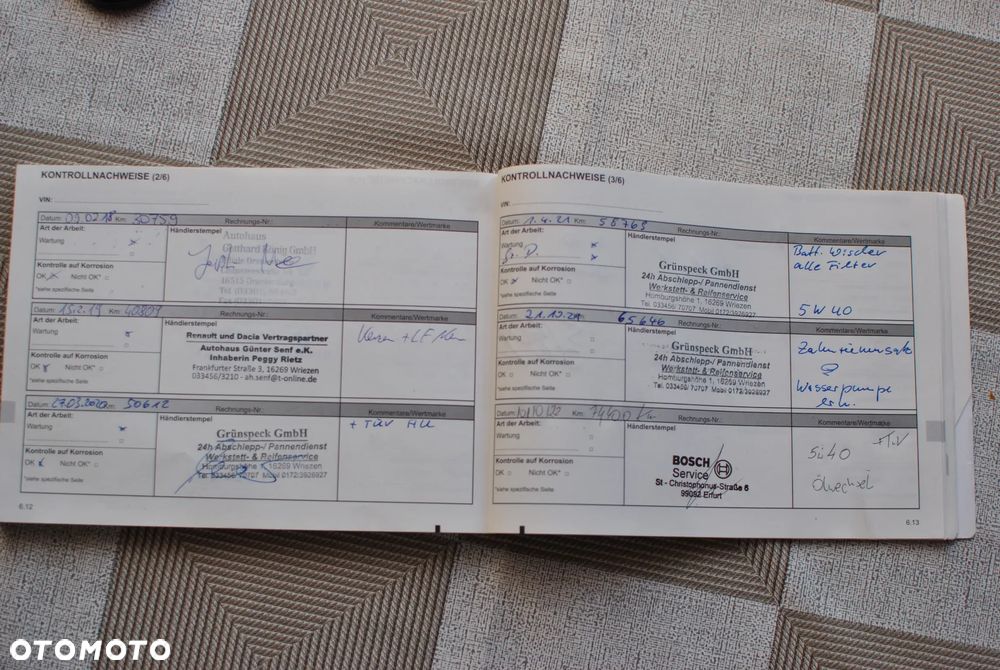 KONTROLLNACHWEISE (2/6)
VIN:
Datum: 09.02.18 Km: 30759 Rechnungs-Nr.: Kommentare/Wertmarke
Art der Arbeit: Händlerstempel
Wartung x
Autohaus
GmbH
Kontrolle auf Korrosion
OK Nicht OK*
*siehe spezifische Seite
16515
Datum: 13.2.19 Km: 40809 Rechnungs-Nr.: Kommentare/Wertmarke
Art der Arbeit: Händlerstempel
Wartung
Renault und Dacia Vertragspartner
Autohaus Günter Senf e.K.
Inhaberin Peggy Rietz
Frankfurter Straße 3, 16269 Wriezen
033456/3210 - ah.senf@t-online.de
Kontrolle auf Korrosion
OK Nicht OK*
*siehe spezifische Seite
Datum: 27.03.2020 Km: 50612 Rechnungs-Nr.: Kommentare/Wertmarke
Art der Arbeit: Händlerstempel
+ TÜV HU
Wartung x
Grünspeck GmbH
24h Abschlepp-/ Pannendienst
Werkstatt- & Reifenservice
Homburgshöhe 1, 16269 Wriezen
Tel. 033456/ 70707 Mobil 0172/3926927
Kontrolle auf Korrosion
OK Nicht OK*
*siehe spezifische Seite
6.12
KONTROLLNACHWEISE (3/6)
VIN:
Datum: 1.4.21 Km: 58769 Rechnungs-Nr.: Kommentare/Wertmarke
Art der Arbeit: Händlerstempel
Wartung x
Batt. Wischer
alle Filter
5W40
Grünspeck GmbH
24h Abschlepp-/ Pannendienst
Werkstatt- & Reifenservice
Homburgshöhe 1, 16269 Wriezen
Tel. 033456/ 70707 Mobil 0172/3926927
Kontrolle auf Korrosion
OK Nicht OK*
*siehe spezifische Seite
Datum: 21.10.21 65646 Rechnungs-Nr.: Kommentare/Wertmarke
Art der Arbeit: Händlerstempel
Wartung
Zahnriemensatz
Wasserpumpe
ern.
Grünspeck GmbH
24h Abschlepp-/ Pannendienst
Werkstatt- & Reifenservice
Homburgshöhe 1, 16269 Wriezen
Tel. 033456/ 70707 Mobil 0172/3926927
Kontrolle auf Korrosion
OK Nicht OK*
*siehe spezifische Seite
Datum: 10/10/22 Km: 74400 Km Rechnungs-Nr.: Kommentare/Wertmarke
Art der Arbeit: Händlerstempel
Wartung
+TÜV
5W40
Ölwechsel
BOSCH
Service
St - Christophorus-Straße 6
99092 Erfurt
Kontrolle auf Korrosion
OK Nicht OK*
*siehe spezifische Seite
6.13
OTOMOTO